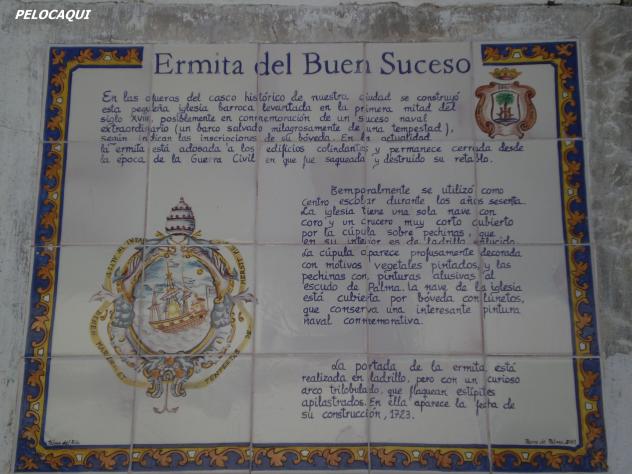 PELOCAQUI
Ermita del Buen Suceso
En las afueras del casco histórico de nuestra ciudad se construyó
esta pequeña iglesia barroca levantada en la primera mitad del
siglo XVIII, posiblemente en conmemoración de un suceso naval
extraordinario (un barco salvado milagrosamente de una tempestad),
según indican las inscripciones de su bóveda. En la actualidad
la ermita está adosada a los edificios colindantes y permanece cerrada desde
la época de la Guerra Civil en que fue saqueada y destruido su retablo.
Temporalmente se utilizó como
centro escolar durante los años sesenta.
La iglesia tiene una sola nave con
coro y un crucero muy corto cubierto
por la cúpula sobre pechinas, que
en su interior es de ladrillo enlucido.
La cúpula aparece profusamente decorada
con motivos vegetales pintados, y las
pechinas con pinturas alusivas al
escudo de Palma. La nave de la iglesia
está cubierta por bóveda con lunetos,
que conserva una interesante pintura
naval conmemorativa.
La portada de la ermita está
realizada en ladrillo, pero con un curioso
arco trilobulado, que flaquean estípites
apilastrados. En ella aparece la fecha de
su construcción, 1723.
Palma del Río